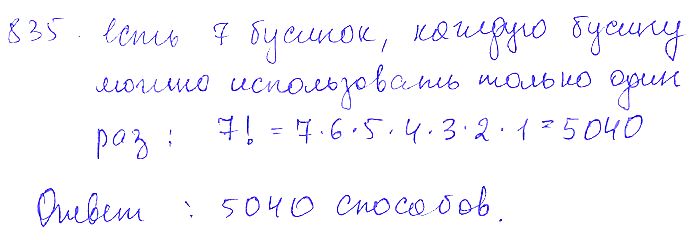 835. Есть 7 бусинок, каждую бусину
можно использовать только один
раз: 7! = 7·6·5·4·3·2·1 = 5040
Ответ: 5040 способов.